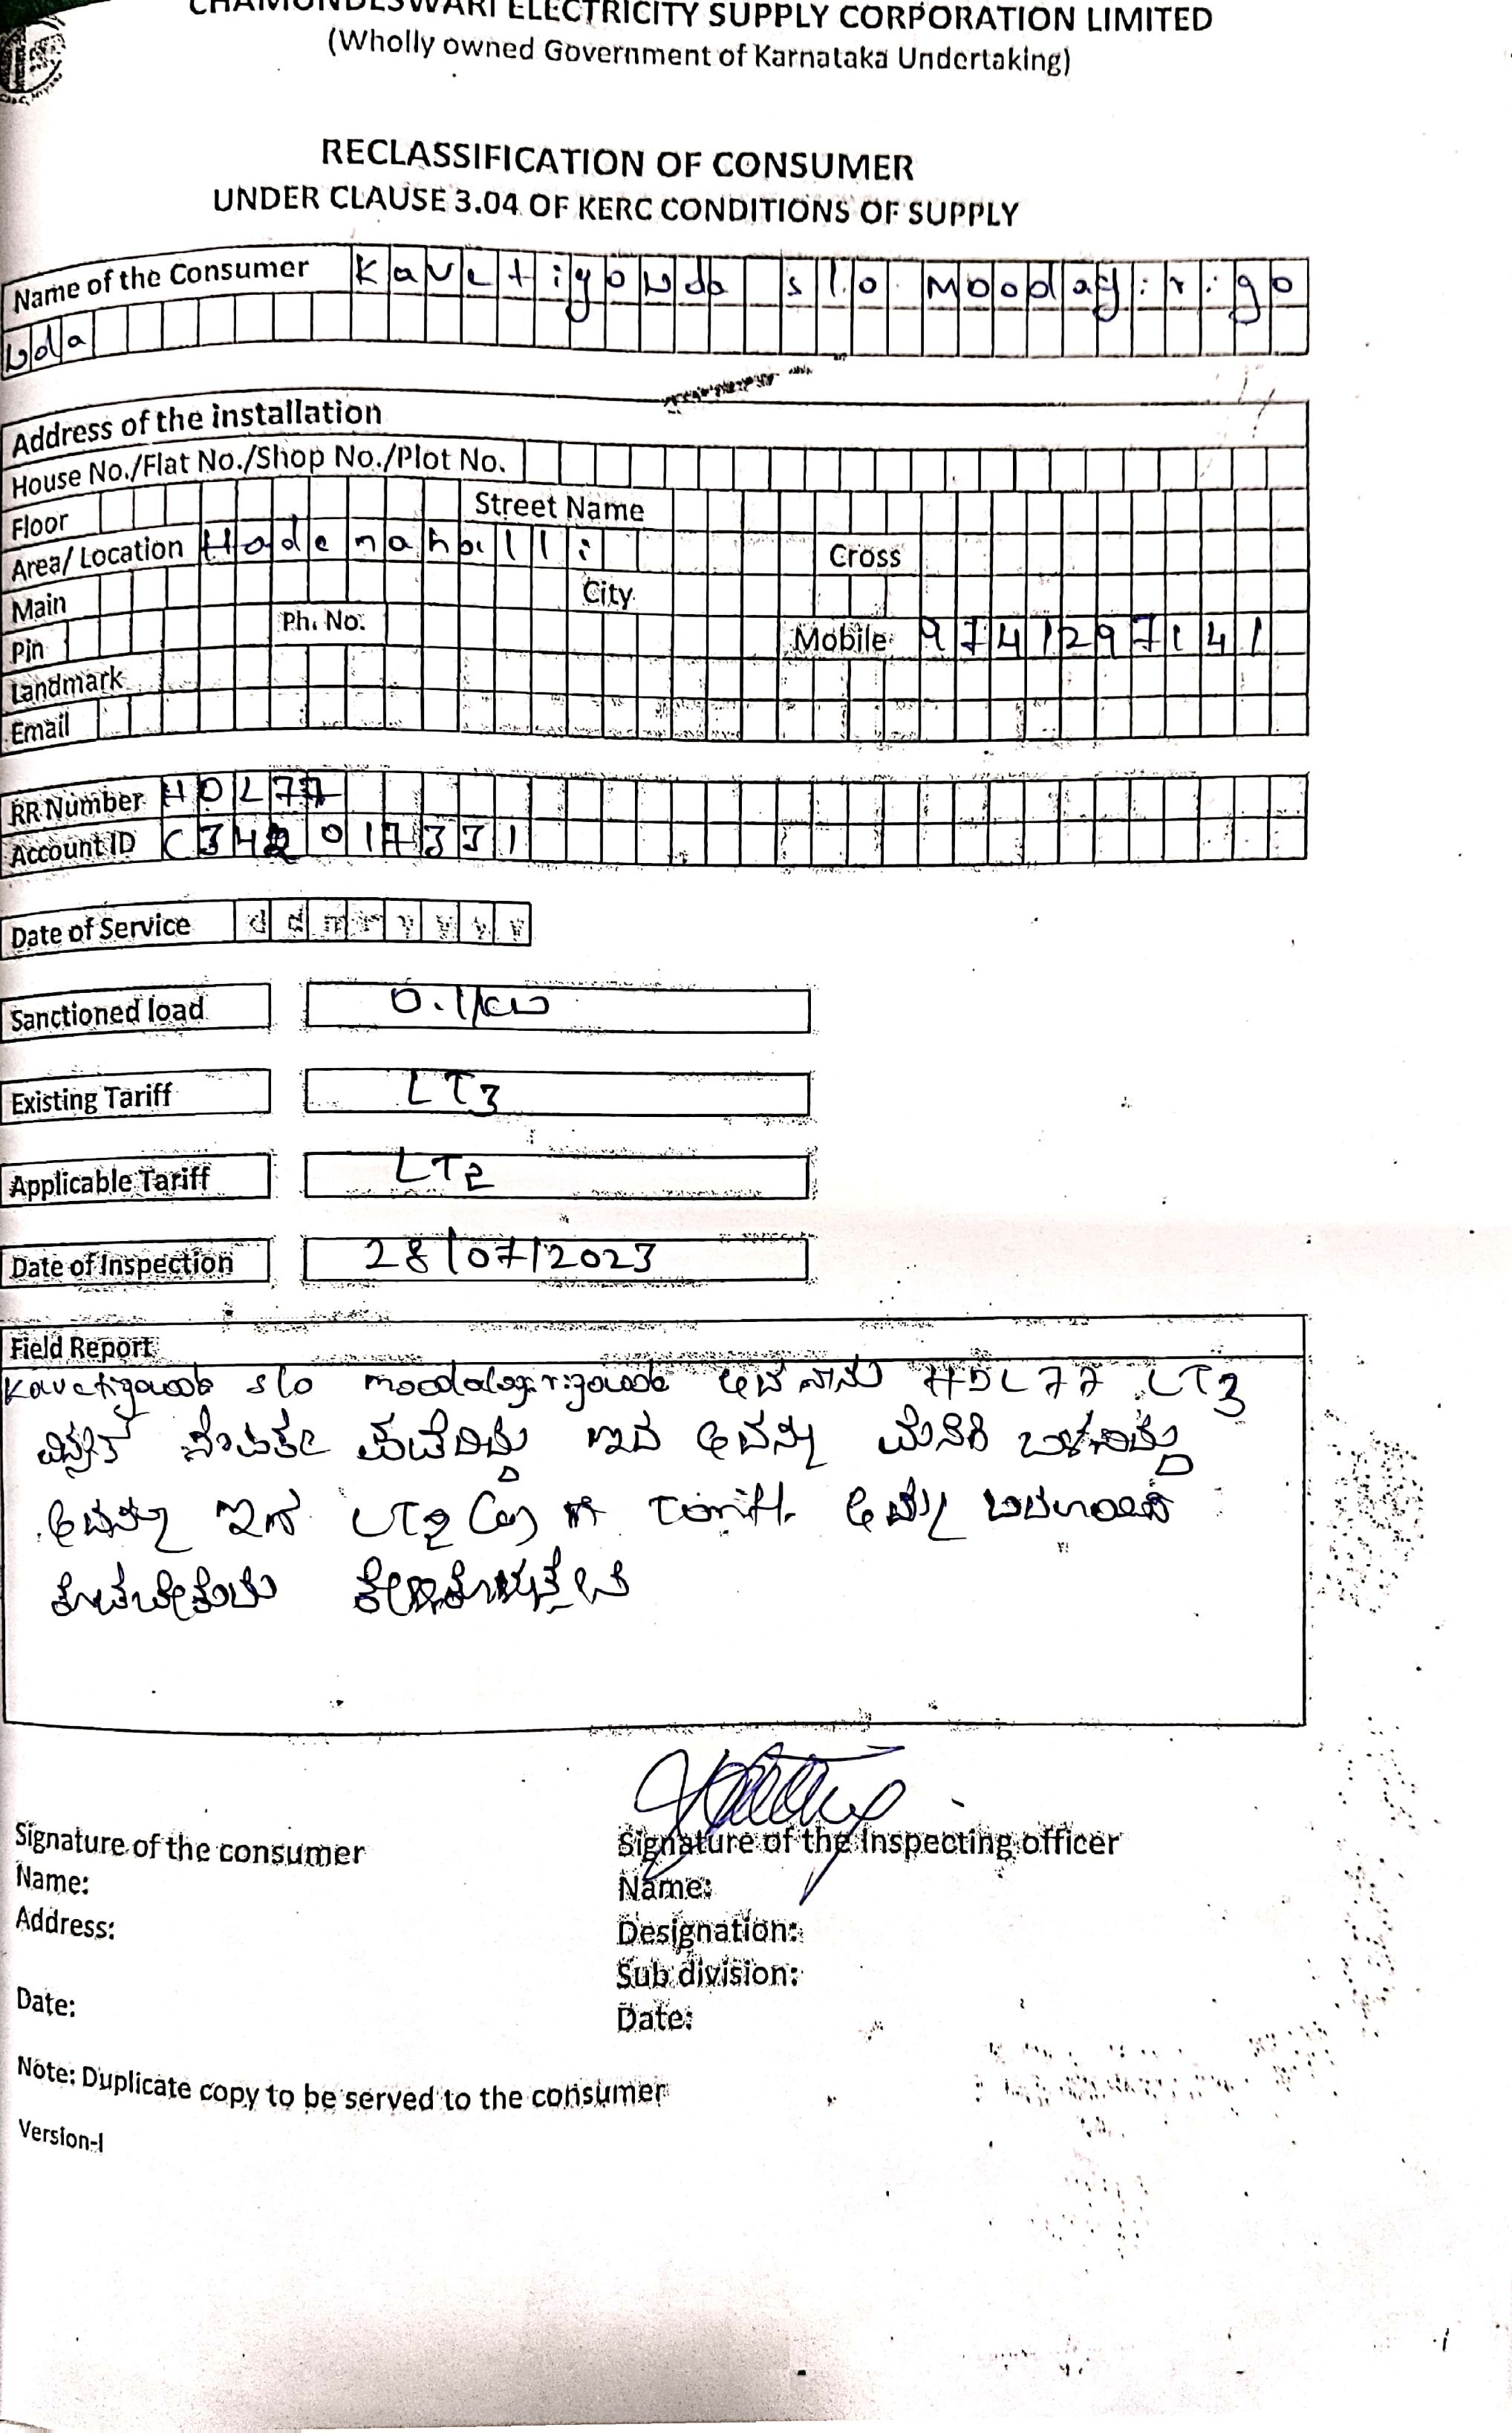 CHAMUNDESWARI ELECTRICITY SUPPLY CORPORATION LIMITED
(Wholly owned Government of Karnataka Undertaking)
RECLASSIFICATION OF CONSUMER
UNDER CLAUSE 3.04 OF KERC CONDITIONS OF SUPPLY
Name of the Consumer Kavetigowda s/o Moodagirigo
wda
Address of the installation
House No./Flat No./Shop No./Plot No.
Floor Street Name
Area/ Location Hodenahalli Cross
Main City
Pin Ph. No. Mobile 9741297141
Landmark
Email
RR Number HDL77
Account ID C342017331
Date of Service d d m y y y y
Sanctioned load 0.1kw
Existing Tariff LT3
Applicable Tariff LT2
Date of Inspection 28/07/2023
Field Report
Kavetigowda s/o ಆದ ನಾನು HDL77 LT3
ವಿದ್ಯುತ್ ಸಂಪರ್ಕ ಪಡೆದಿದ್ದು ಇದ ಅದನ್ನು ಮನೆಗೆ
ಅದನ್ನು LT2 Tariff
Signature of the consumer Signature of the Inspecting officer
Name: Name:
Address: Designation:
Sub division:
Date: Date:
Note: Duplicate copy to be served to the consumer
Version-I